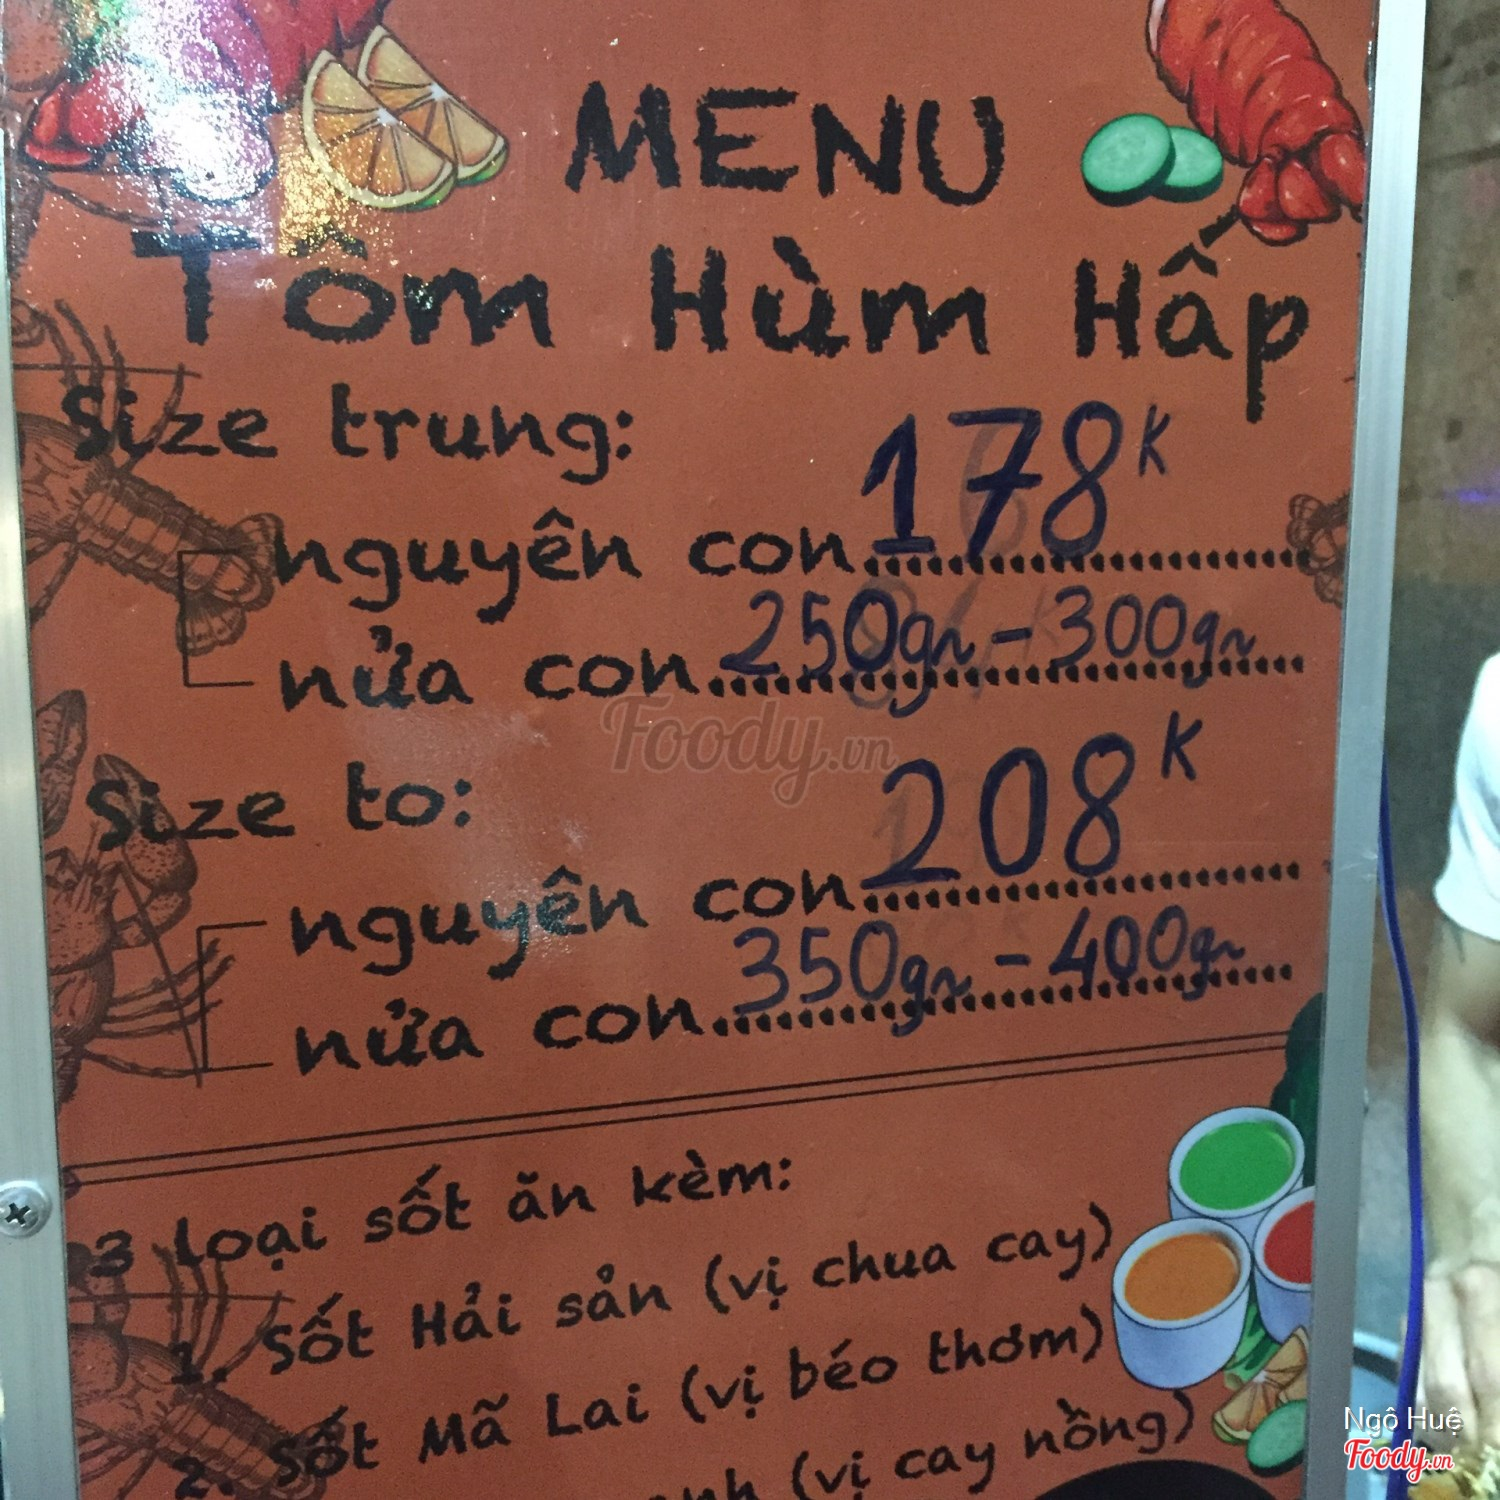 MENU
Tôm Hùm Hấp
Size trung:
nguyên con 178K
nửa con 250gr - 300gr
Foody.vn
Size to:
nguyên con 208K
nửa con 350gr - 400gr
3 loại sốt ăn kèm:
1. Sốt Hải sản (vị chua cay)
2. Sốt Mã Lai (vị béo thơm)
(vị cay nồng)
Ngô Huệ
Foody.vn